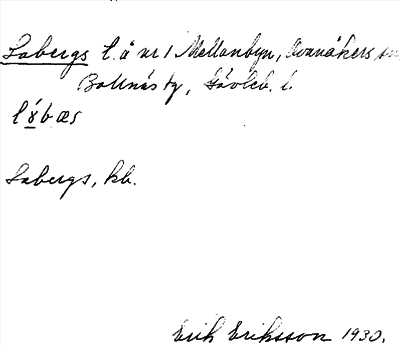 Labergs l. å nr 1 Mellanbyn, Ovanåkers sn
Bollnäs tg, Gävleb. l.
Labergs, kb.
Erik Eriksson 1930.